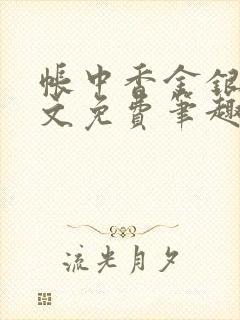 帐中香金银
文免费笔趣
流光月夕